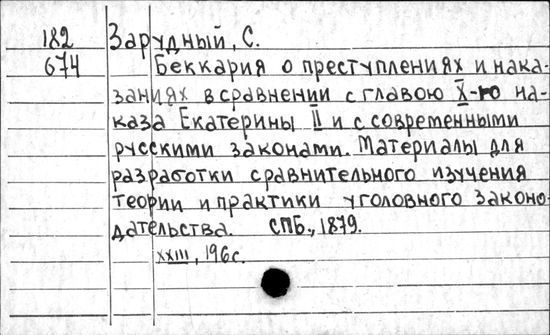 182 Зарудный, С.
674 Беккария о преступлениях и нака-
заниях в сравнении с главою X-ю на-
каза Екатерины II и с современными
русскими законами. Материалы для
разработки сравнительного изучения
теории и практики уголовного законо-
дательства. СПБ., 1879.
XXIII, 196 с.